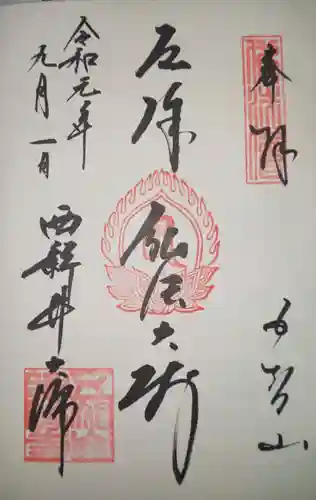 奉拝
五智山
厄除
弘法大師
令和元年
九月一日
西新井大師